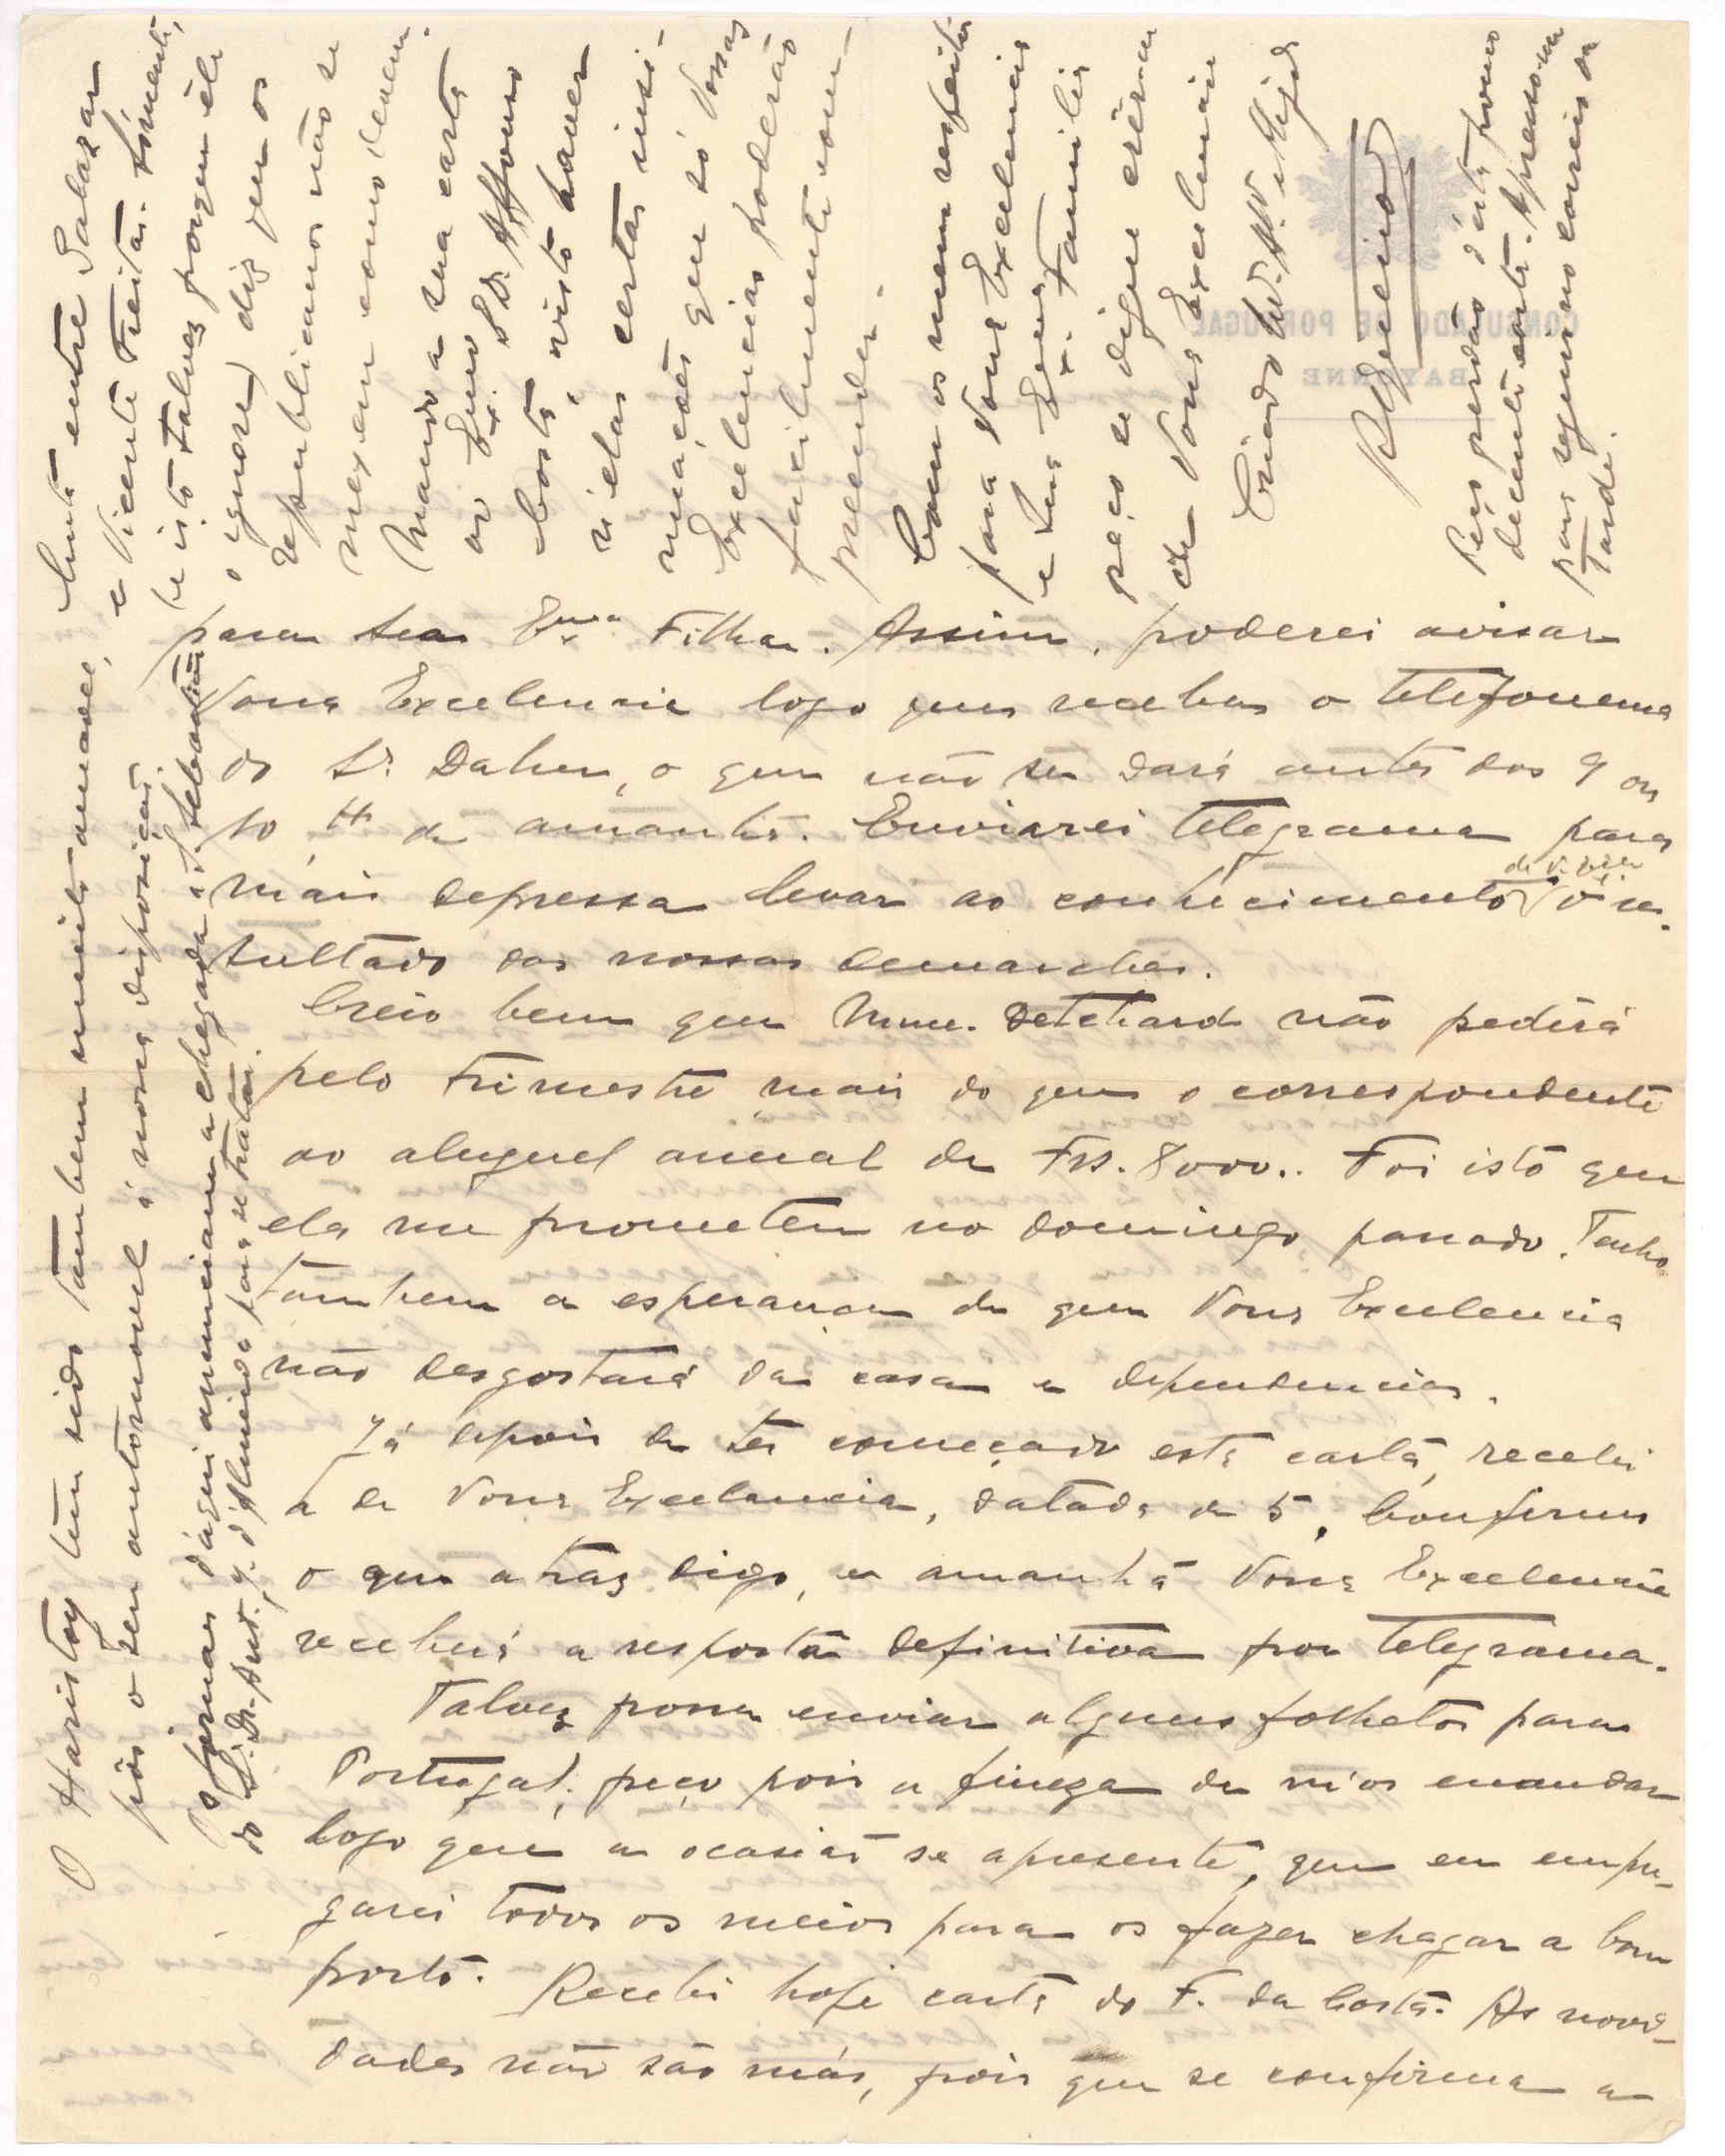 para sua Exma. Filha. Assim, poderei avisar
Vossa Excelencia logo que receba o telefonema
do Sr. Dahen, o que não se dará antes das 9 ou
10 H de amanhã. Enviarei telegrama para
mais depressa levar ao conhecimento de V. Excia. o re-
sultado das nossas demarches.
Creio bem que Mme. Detchard não pedirá
pelo trimestre mais do que o correspondente
ao aluguel anual de Frs. 8000.. Foi isto que
ela me prometeu no domingo passado. Tenho
tambem a esperança de que Vossa Excelencia
não desgostará da casa e dependencias.
Já depois de ter começado esta carta, recebi
a de Vossa Excelencia, datada de 5, Confirmo
o que atraz digo, e amanhã Vossa Excelencia
receberá a resposta definitiva por telegrama.
Talvez possa enviar alguns folhetos para
Portugal; peço pois a fineza de m'os mandar
logo que a ocasião se apresente, que eu empre-
garei todos os meios para os fazer chegar a bom
porto. Recebi hoje carta do F. da Costa. As novi-
dades não são más, pois que se confirma a
luta entre Salazar
e Vicente Freitas. Sómente,
(e isto talvez porque êle
o ignore) diz que os
republicanos não se
mexem como devem.
Mando a sua carta
ao Exmo Sr. Dr. Affonso
Costa, visto haver
n'elas certas insi-
nuações que só Vossas
Excelencias poderão
facilmente com-
preender.
Com os meus respeitos
para Vossa Excelencia
e sua Exma. Familia
peço se digne crêr-me
de Vossa Excelencia
Criado
Peço perdão d'esta pouco
decente carta. Apresso-me
para seguir no correio da
tarde.
O Haristoy tem sido tambem muito amavel,
pôs o seu automovel á nossa disposição.
Os jornaes d'aqui anunciam a chegada a S. Sebastian
do Sr. Dr. Ant. J. d'Almeida para se tratar.
CONSULADO DE PORTUGAL
BAYONNE